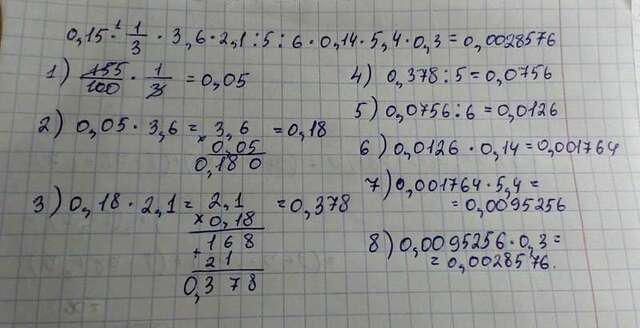 0,15 · 1/3 · 3,6 · 2,1 : 5 : 6 · 0,14 · 5,4 · 0,3 = 0,0028576
1) 155/100 · 1/3 = 0,05
2) 0,05 · 3,6 = 3,6 = 0,18
× 0,05
0,180
3) 0,18 · 2,1 = 2,1 = 0,378
× 0,18
168
+ 21
0,378
4) 0,378 : 5 = 0,0756
5) 0,0756 : 6 = 0,0126
6) 0,0126 · 0,14 = 0,001764
7) 0,001764 · 5,4 =
= 0,0095256
8) 0,0095256 · 0,3 =
= 0,0028576.